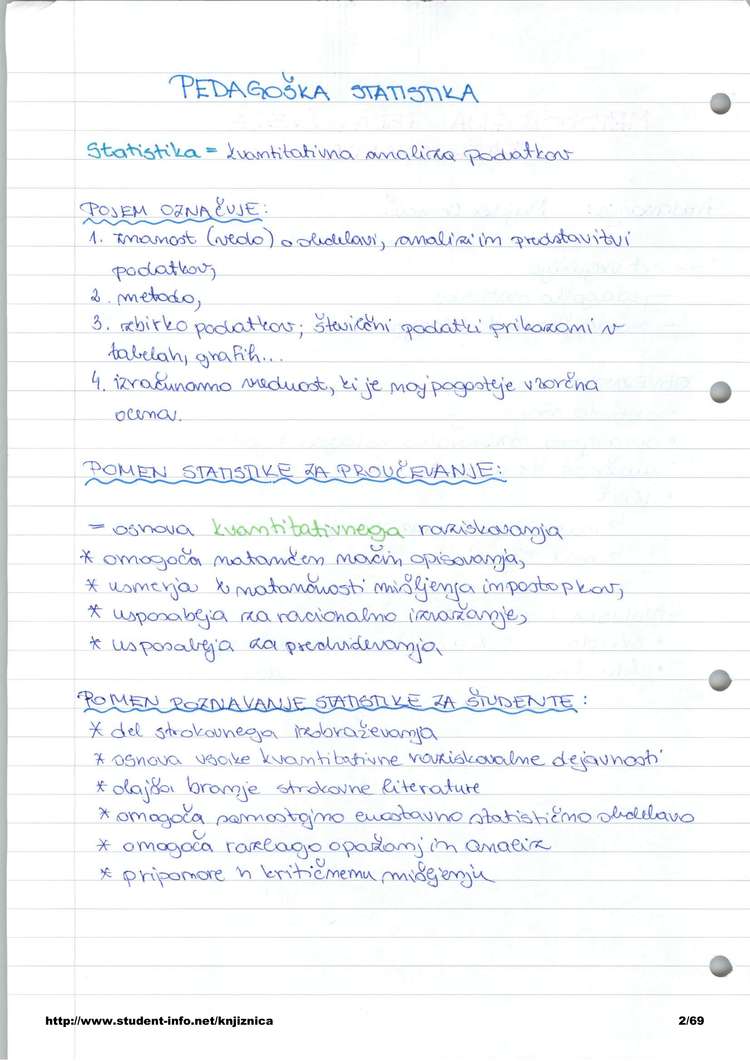 PEDAGOŠKA STATISTIKA
Statistika = kvantitativna analiza podatkov
POJEM OZNAČUJE:
1. znanost (vedo) o obdelavi, analizi in predstavitvi
podatkov,
2. metodo,
3. zbirko podatkov; številčni podatki prikazani v
tabelah, grafih...
4. izračunano vrednost, ki je najpogosteje vzorčna
ocena.
POMEN STATISTIKE ZA PROUČEVANJE:
= osnova kvantitativnega raziskovanja
* omogoča natančen način opisovanja,
* usmerja k natančnosti mišljenja in postopkov,
* usposablja za racionalno izražanje,
* usposablja za predvidevanja
POMEN POZNAVANJE STATISTIKE ZA ŠTUDENTE:
* del strokovnega izobraževanja
* osnova vsake kvantitativne raziskovalne dejavnosti
* olajša branje strokovne literature
* omogoča samostojno enostavno statistično obdelavo
* omogoča razlago opažanj in analiz
* pripomore h kritičnemu mišljenju
http://www.student-info.net/knjiznica 2/69